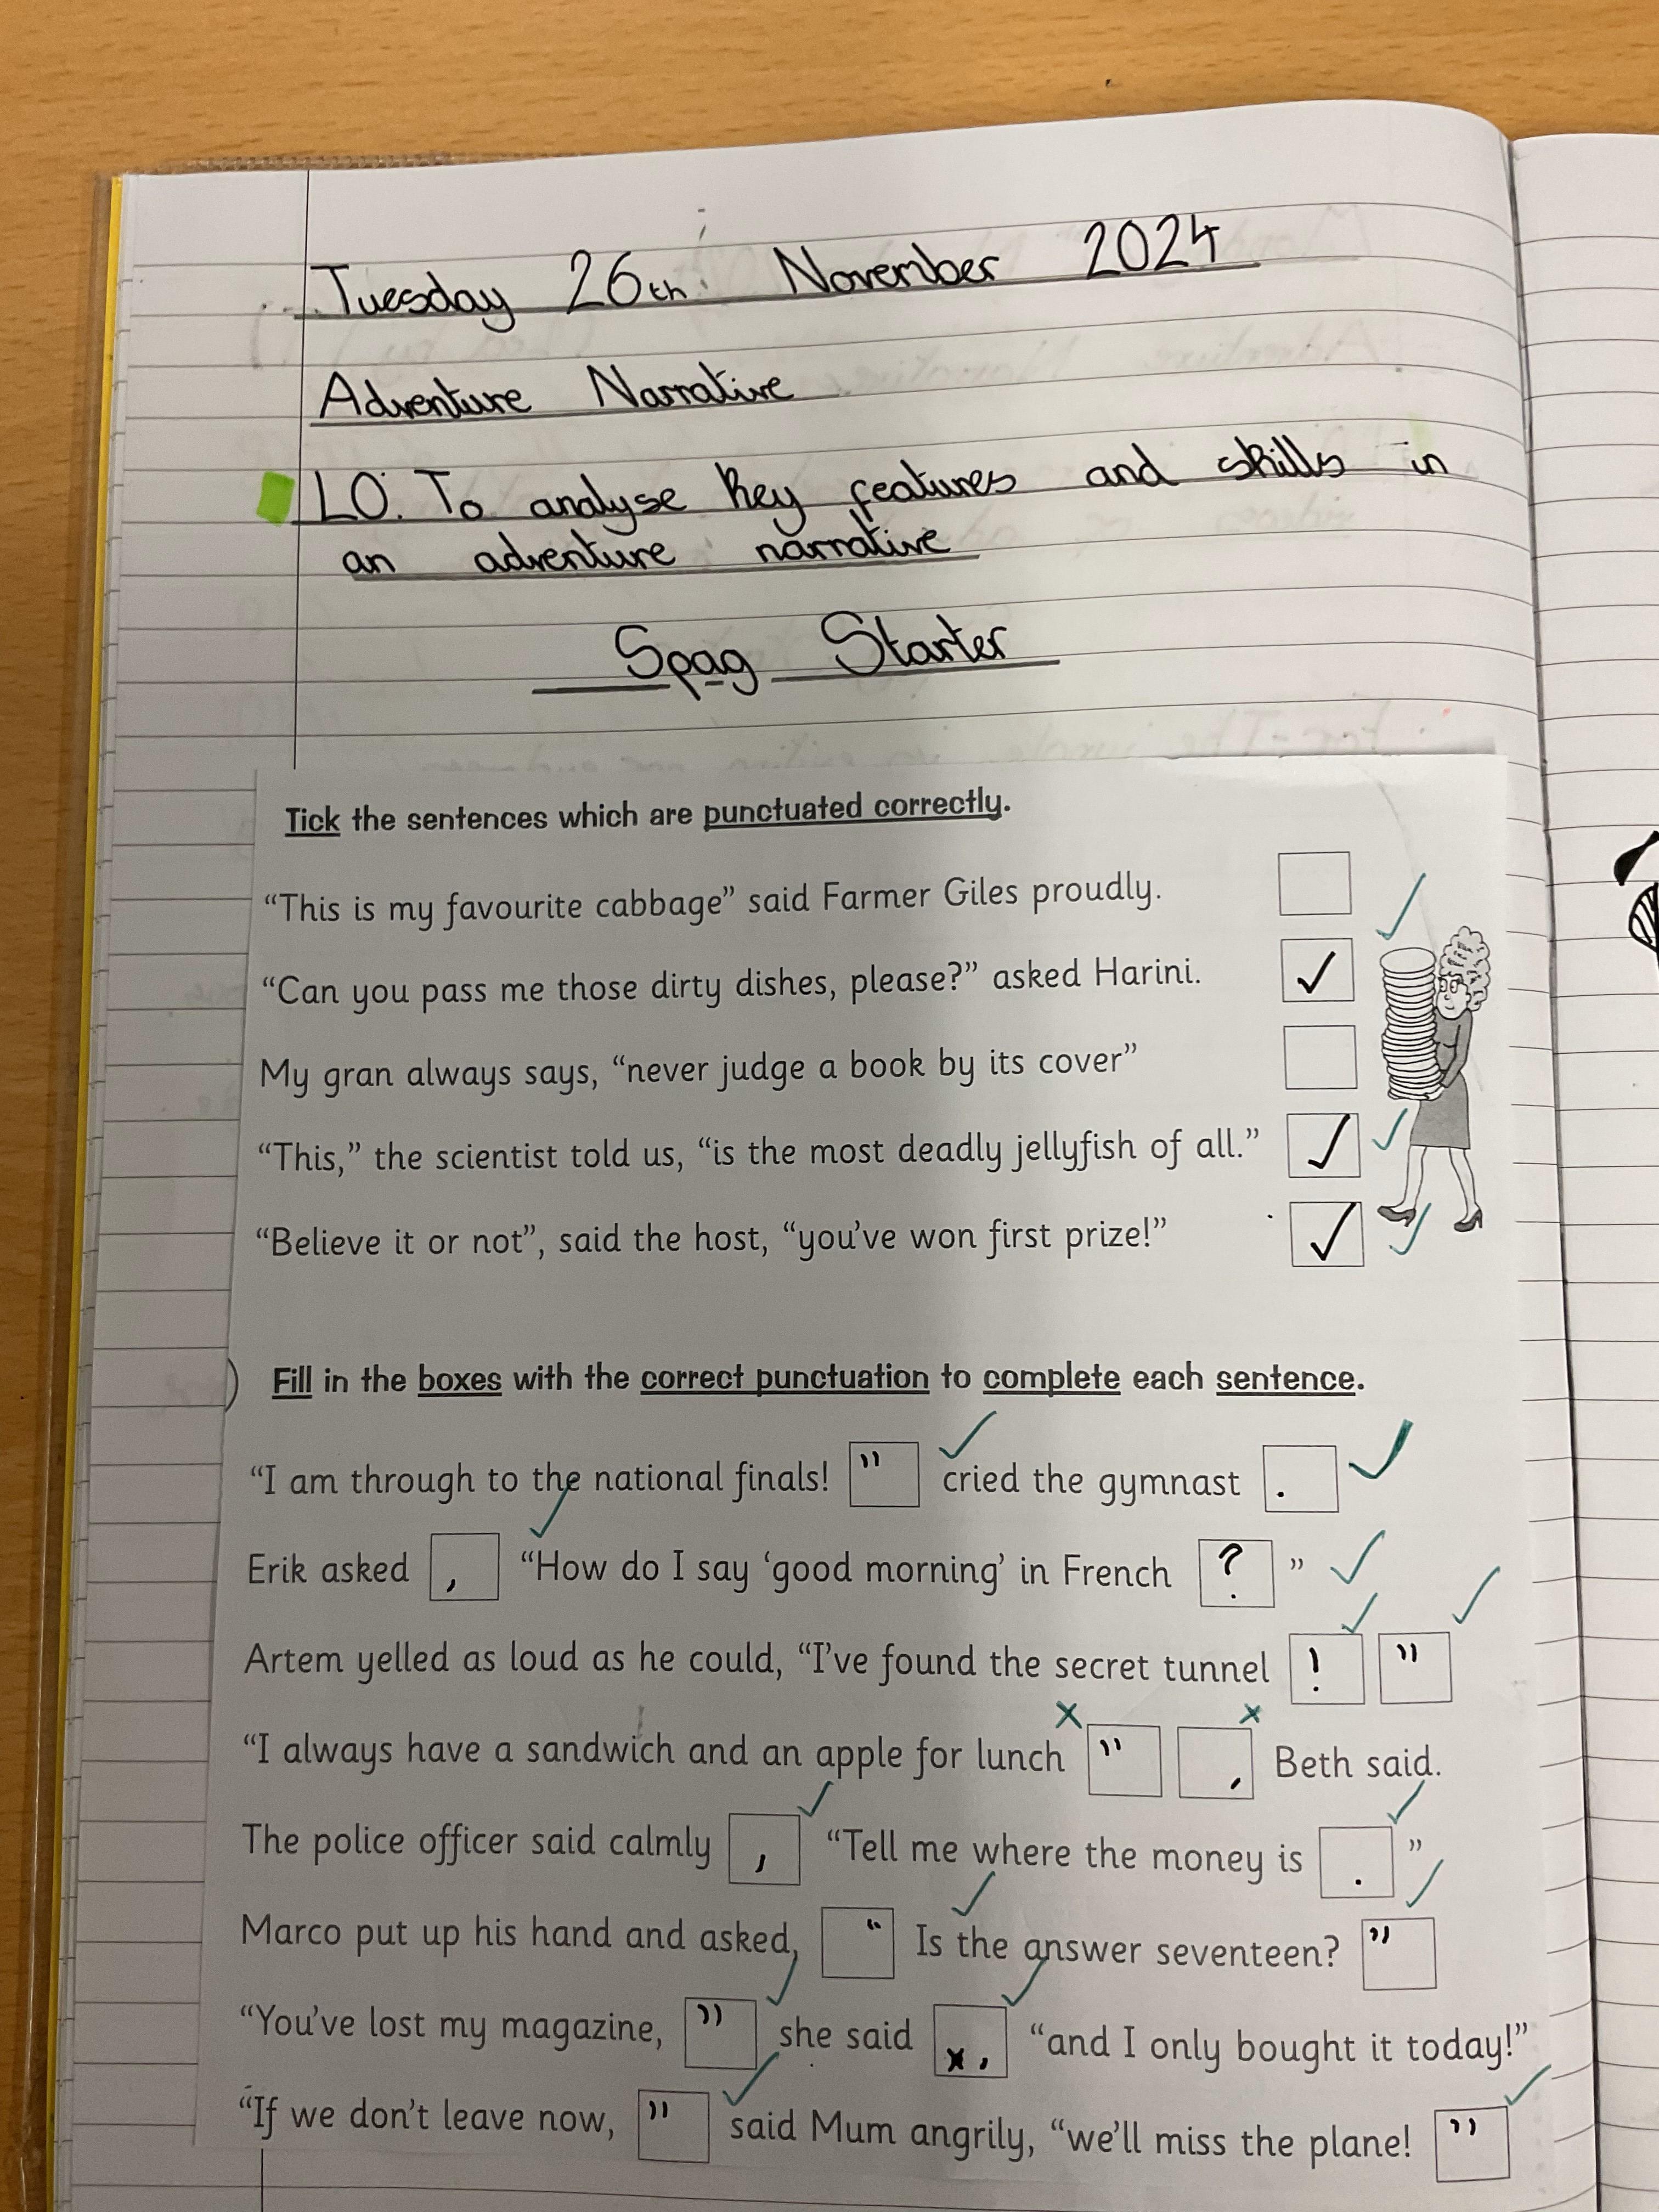 Tuesday 26th November 2024
Adventure Narrative
LO: To analyse key features and skills in
an adventure narrative
Spag Starter
Tick the sentences which are punctuated correctly.
“This is my favourite cabbage” said Farmer Giles proudly.
“Can you pass me those dirty dishes, please?” asked Harini. ✓
My gran always says, “never judge a book by its cover”
“This,” the scientist told us, “is the most deadly jellyfish of all.” ✓
“Believe it or not”, said the host, “you’ve won first prize!” ✓
) Fill in the boxes with the correct punctuation to complete each sentence.
“I am through to the national finals! ” cried the gymnast .
Erik asked , “How do I say ‘good morning’ in French ? ”
Artem yelled as loud as he could, “I’ve found the secret tunnel ! ”
“I always have a sandwich and an apple for lunch ” , Beth said.
The police officer said calmly , “Tell me where the money is . ”
Marco put up his hand and asked, “ Is the answer seventeen? ”
“You’ve lost my magazine, ” she said , “and I only bought it today!”
“If we don’t leave now, ” said Mum angrily, “we’ll miss the plane! ”